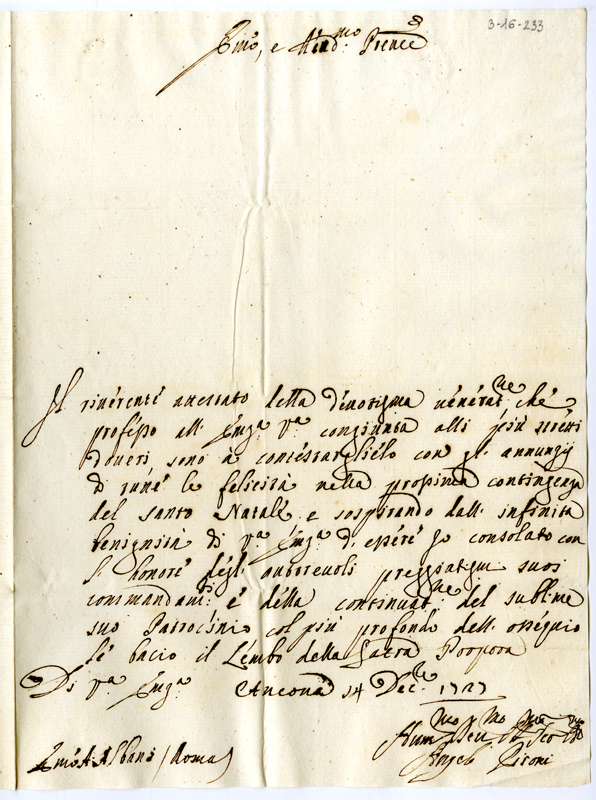 3-16-233
Emo, e Rmo Prencẽ
Il riverente attestato della divotissma venerat.ne che
professo all' Emza Va congiunta alli più stretti
doveri, sono a contestarglielo con gl' annunzij
di tutte le felicità nella prossima contingenza
del santo Natale e sospirando dall' infinita
benignità di Va Emza d' essere Io consolato con
l' honore degl' autorevoli preggiatissmi suoi
commandam.ti e della continuat.ne del sublime
suo Patrocinio col più profondo dell' ossequio
le bacio il Lembo della Sacra Porpora
Di Va Emza Ancona 14 Dec.re 1727
Hum.mo
Emo Albani (Roma) Angelo Pironi